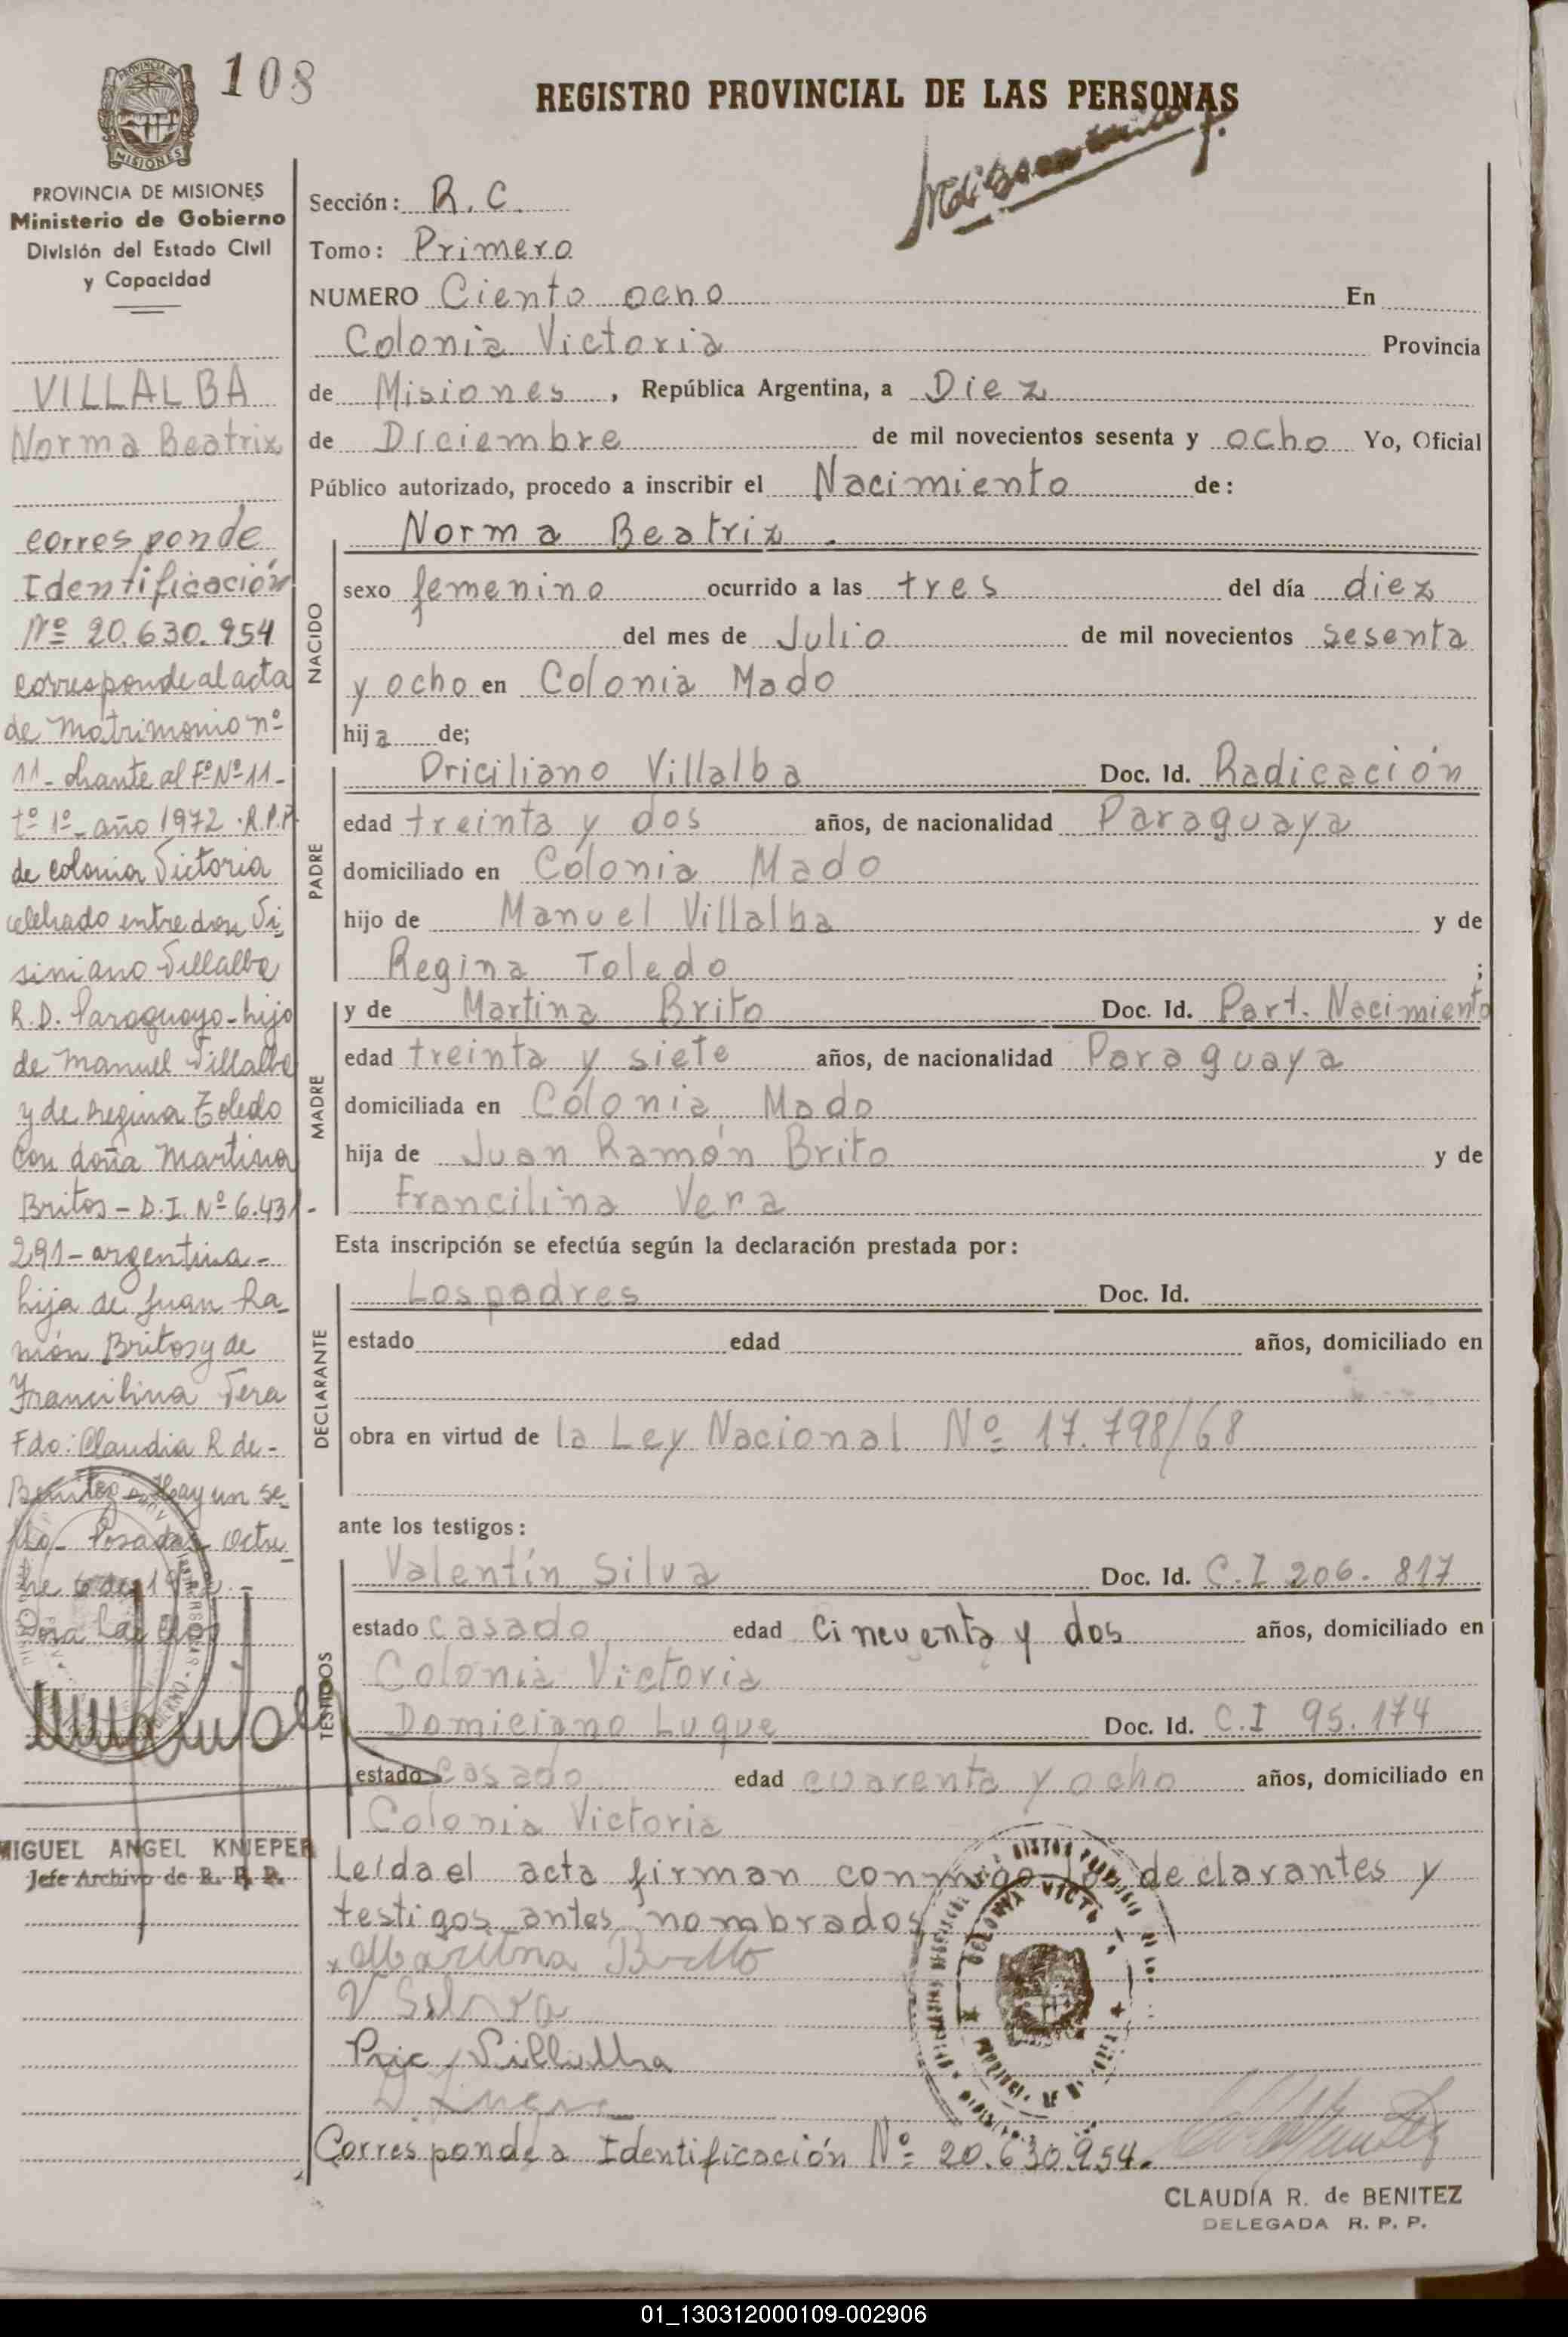 108
REGISTRO PROVINCIAL DE LAS PERSONAS
PROVINCIA DE
MISIONES
PROVINCIA DE MISIONES
Ministerio de Gobierno
División del Estado Civil
y Capacidad
VILLALBA
Norma Beatriz
corresponde
Identificación
Nº 20.630.954
corresponde al acta
de Matrimonio nº
11 - obrante al Fº Nº 11 -
tº 1º - año 1972 - R.P.P.
de colonia Victoria
celebrado entre don Vi
siniano Villalba
R.D. Paraguayo - hijo
de Manuel Villalba
y de Regina Toledo
con doña Martina
Britos - D.I. Nº 6.431-
291 - argentina -
hija de Juan Ra
món Britos y de
Francilina Vera
Fdo: Claudia R de -
Benitez - Hay un se
llo - Posadas Octu
MIGUEL ANGEL KNIEPER
Jefe Archivo de R. P. P.
Sección: R. C.
Tomo: Primero
NUMERO Ciento ocho En
Colonia Victoria Provincia
de Misiones, República Argentina, a Diez
de Diciembre de mil novecientos sesenta y ocho Yo, Oficial
Público autorizado, procedo a inscribir el Nacimiento de:
NACIDO
Norma Beatriz.
sexo femenino ocurrido a las tres del día diez
del mes de Julio de mil novecientos sesenta
y ocho en Colonia Mado
hija de;
PADRE
Priciliano Villalba Doc. Id. Radicación
edad treinta y dos años, de nacionalidad Paraguaya
domiciliado en Colonia Mado
hijo de Manuel Villalba y de
Regina Toledo ;
MADRE
y de Martina Brito Doc. Id. Part. Nacimiento
edad treinta y siete años, de nacionalidad Paraguaya
domiciliada en Colonia Mado
hija de Juan Ramón Brito y de
Francilina Vera
Esta inscripción se efectúa según la declaración prestada por:
DECLARANTE
Los padres Doc. Id.
estado edad años, domiciliado en
obra en virtud de la Ley Nacional Nº 17.798/68
ante los testigos:
TESTIGOS
Valentín Silva Doc. Id. C.I 206.817
estado casado edad Cincuenta y dos años, domiciliado en
Colonia Victoria
Domiciano Luque Doc. Id. C.I 95.174
estado casado edad cuarenta y ocho años, domiciliado en
Colonia Victoria
Leída el acta firman conmigo los declarantes y
testigos antes nombrados
Martina Brito
V Silva
Pric Villalba
D. Luque
Corresponde a Identificación Nº 20.630.954.
CLAUDIA R. de BENITEZ
DELEGADA R. P. P.
01_130312000109-002906